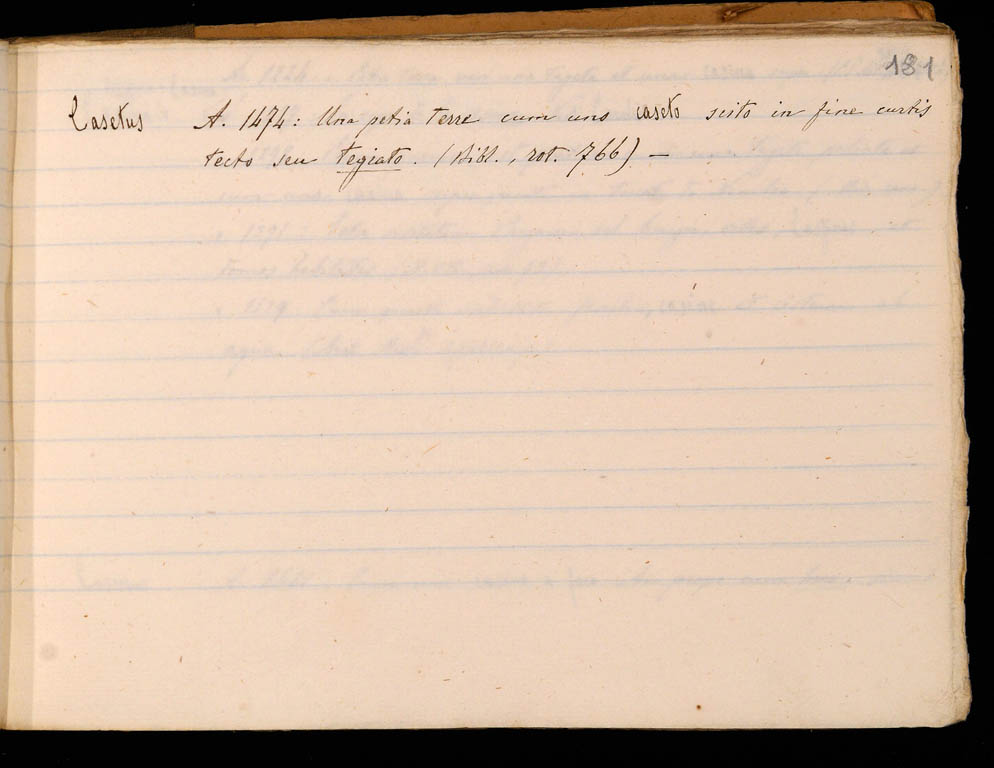 181
Casetus A. 1474: Una petia terre cum uno caseto sito in fine curtis
tecto seu tegiato. (Bibl., rot. 766) —